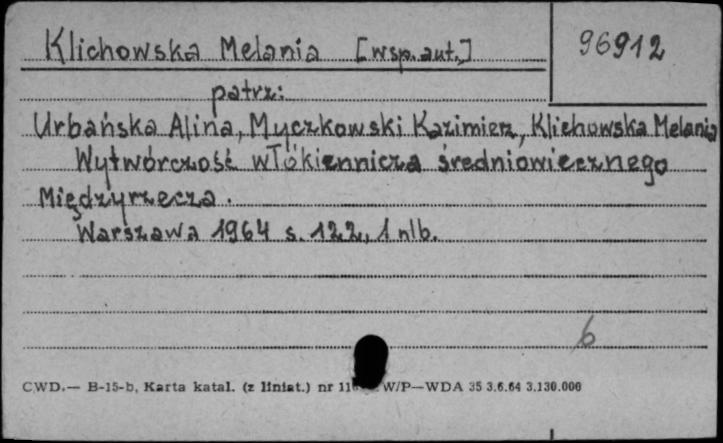 Klichowska Melania [wsp. aut.,]
96912
patrz:
Urbańska Alina, Myczkowski Kazimierz, Klichowska Melania
Wytwórczość włókiennicza średniowiecznego
Międzyrzecza.
Warszawa 1964 s. 122, 1 nlb.
6
CWD.— B-15-b, Karta katal. (z liniat.) nr W/P—WDA 35 3.6.64 3.130.000